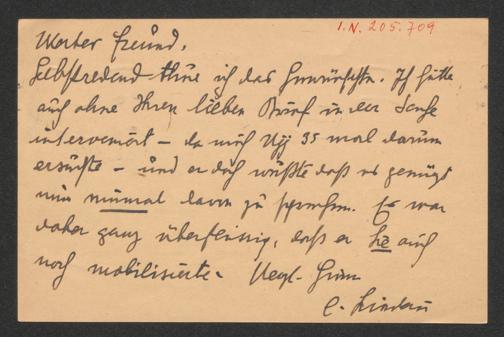 I.N. 205.709
Werter Freund,
Selbstredend thue ich das Gewünschte. Ich hätte
auch ohne Ihren lieben Brief in der Sache
interveniert – da mich 35 mal darum
ersuchte – und er doch wüßte daß es genügt
mir einmal davon zu sprechen. Es war
daher ganz überflüssig, daß er Sie auch
noch mobilisierte.